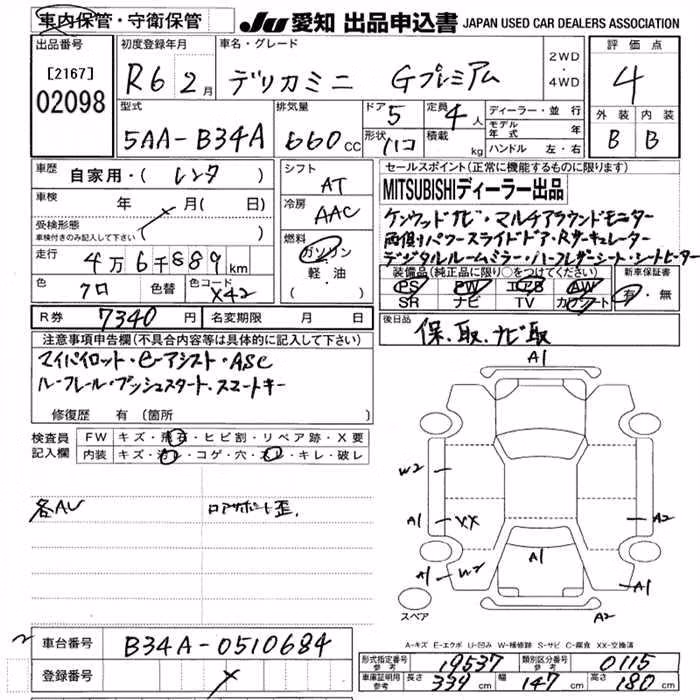 車内保管・守衛保管 JU 愛知 出品申込書 JAPAN USED CAR DEALERS ASSOCIATION
出品番号 初度登録年月 車名・グレード 評価点
[2167] R6 2月 デリカミニ Gプレミアム 2WD・4WD 4
02098 型式 排気量 ドア 5 定員 4人 ディーラー・並行 外装 内装
5AA-B34A 660cc 形状 ハコ 積載 kg モデル年式 年 B B
ハンドル 左・右
車歴 自家用・( レンタ ) シフト AT セールスポイント(正常に機能するものに限ります)
車検 年 月( 日) 冷房 AAC MITSUBISHIディーラー出品
受検形態 車検付きのみ記入して下さい ケンウッドナビ・マルチアラウンドモニター
燃料 ガソリン 軽・油 両側パワースライドドア・Rサーキュレーター
走行 4万6千889km デジタルルームミラー・ハーフレザーシート・シートヒーター
装備品(純正品に限り○をつけてください) 新車保証書
色 クロ 色替 色コード X42 PS PW エアB AW 有・無
SR ナビ TV カワシート
R券 7340円 名変期限 月 日 後日品
保、取、ナビ取
注意事項申告欄(不具合内容等は具体的に記入して下さい)
マイパイロット・e-アシスト・ASC
ルーフレール・プッシュスタート・スマートキー
修復歴 有(箇所 )
検査員記入欄 FW キズ・飛石・ヒビ割・リペア跡・X要
内装 キズ・汚レ・コゲ・穴・スレ・キレ・破レ
各AU ロアサポート歪、
A1
W2
A1 XX A2
A1 W2 A1 A1
スペア A2
A-キズ E-エクボ U-凹み W-補修跡 S-サビ C-腐食 XX-交換済
2 車台番号 B34A-0510684
登録番号
形式指定番号 参考 19537 類別区分番号 参考 0115
車庫証明用 参考 長さ 339cm 幅 147cm 高さ 180cm